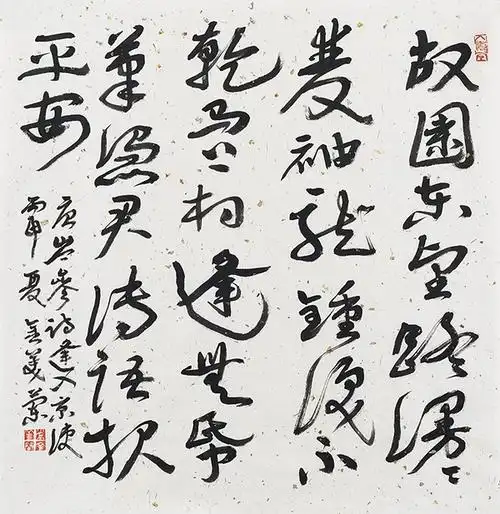 故園東望路漫〻
雙袖龍鍾淚不
乾馬上相逢無帋
筆憑君傳語報
平安
唐岑參詩逢入京使
丙申夏美蘭